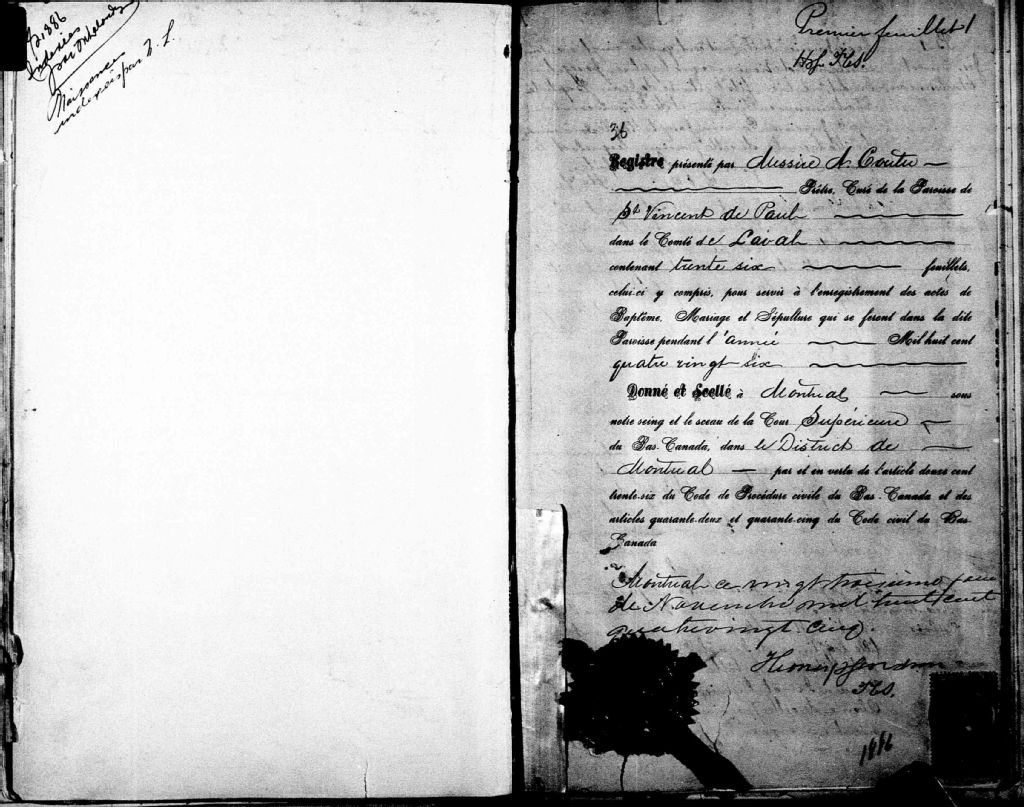 1886
Indexées
par
Naissances
indexées par
Premier feuillet 1
36
Registre présenté par Messire N. Coutu
Prêtre, Curé de la Paroisse de
St Vincent de Paul
dans le Comté de Laval
contenant trente six feuillets,
celui-ci y compris, pour servir à l'enregistrement des actes de
Baptême, Mariage et Sépulture qui se feront dans la dite
Paroisse pendant l'année Mil huit cent
quatre vingt six
Donné et Scellé à Montréal sous
notre seing et le sceau de la Cour Supérieure
du Bas-Canada, dans le District de
Montréal par et en vertu de l'article douze cent
trente-six du Code de Procédure civile du Bas-Canada et des
articles quarante-deux et quarante-cinq du Code civil du Bas-
Canada
Montréal ce vingt troisième jour
de Novembre mil huit cent
quatre vingt cinq.
1886